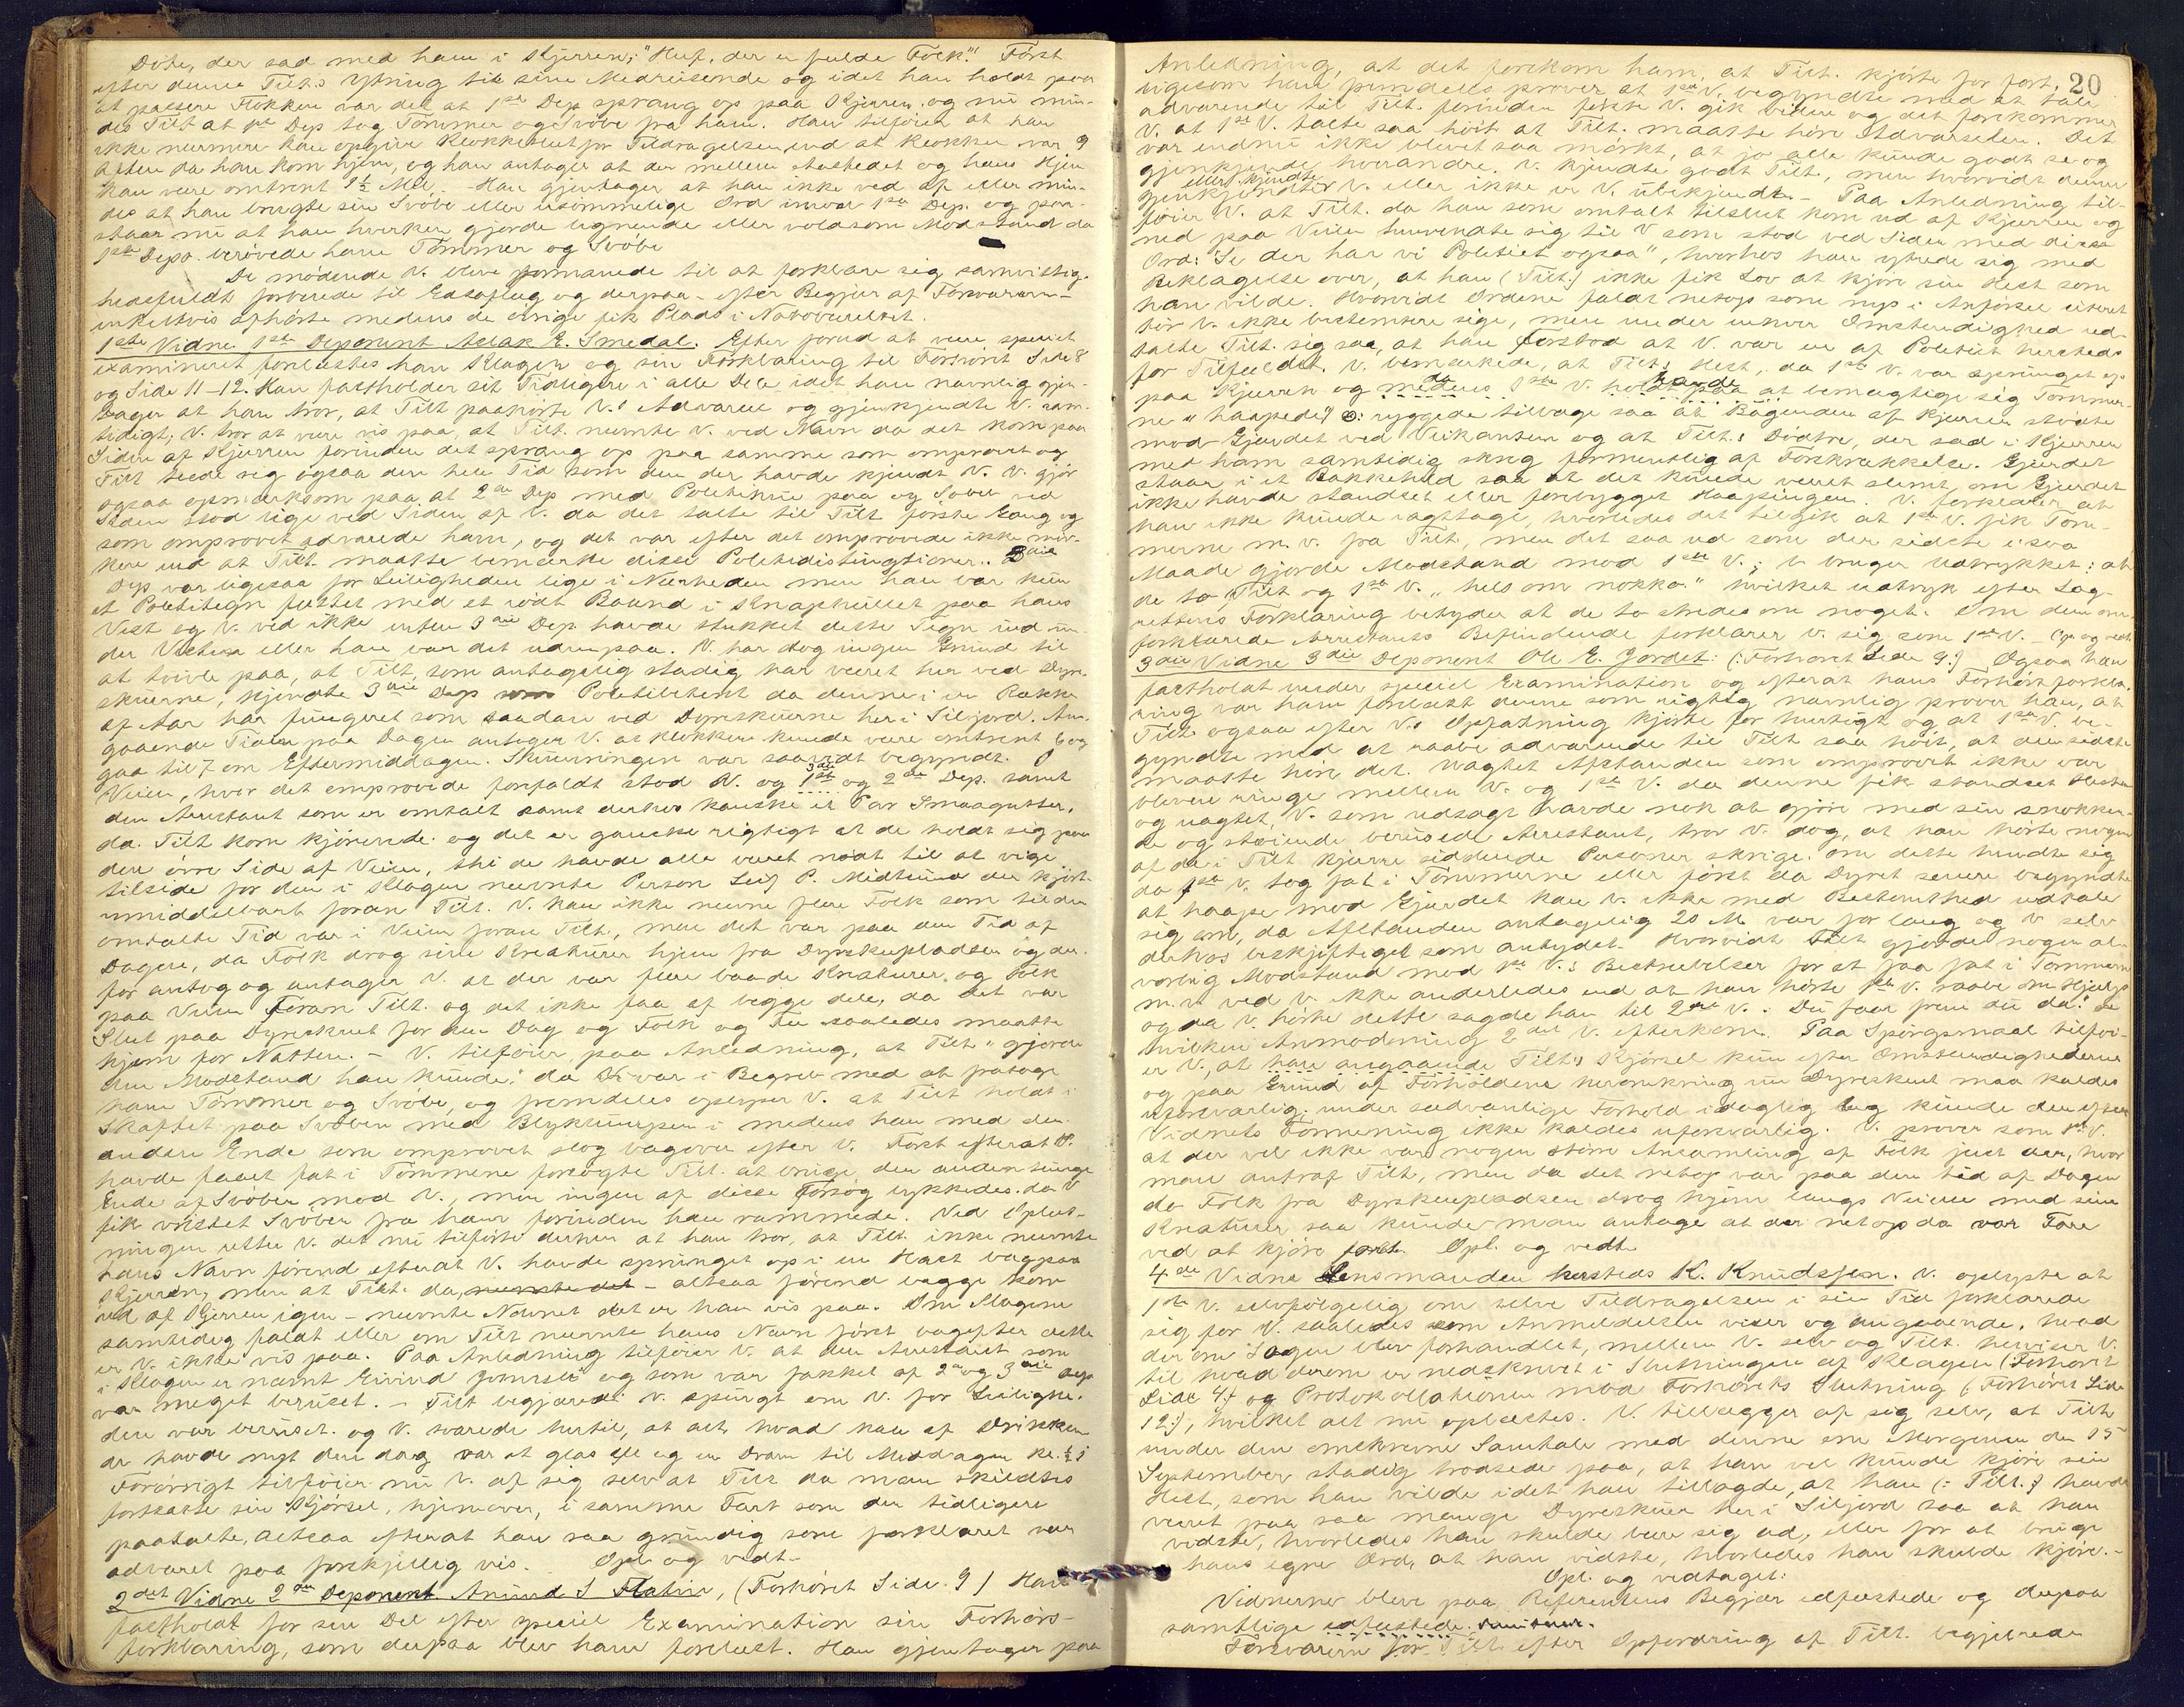 Datter, der sad med ham i Kjerren; "Huf, der er fulde Folk". Först
efter denne Tilt.s Ytring til sine Medreisende og idet han holdt paa
at passere Flokken var det at 1ste Dep sprang op paa Kjerren. og nu min-
des Tilt at 1ste Dep tog Tömmer og Svöbe fra ham. Han tilföier at han
ikke nærmere kan opgive Klokkeslet for Tildragelsen, end at Klokken var 9
aften da han kom hjem, og han antager at der mellem Aastedet og hans Hjem
kan være omtrent 1½ Mil. - Han gjentager at han ikke ved af eller min-
des at han brugte sin Svöbe eller usömmelige Ord imod 1ste Dep. og paa-
staar nu at han hverken gjorde lignende eller voldsom Modstand da
1ste Depo. berövede ham Tömmer og Svöbe
De mödende V. bleve formanede til at forklare sig samvittig-
hedsfuldt forberede til Edsaflæg og derpaa - efter Begjær af Forsvareren -
enkeltvis afhörte medens de övrige fik Plads i Naboværelset.
1ste Vidne 1ste Deponent Aslak E. Smedal. Efter forud at være speciet
examineret forelæstes han Klagen og sin Forklaring til Forhöret Side 8
og Side 11-12. Han fastholder sit Tidligere i alle Dele idet han navnlig gjen-
tager at han tror, at Tilt paahörte V.s Advarsel og gjenkjendte V. sam-
tidigt; V. tror at være vis paa, at Tilt. nævnte V. ved Navn da det kom paa
Siden af Kjerren forinden det sprang op paa samme som omprovet og
Tilt teede sig ogsaa den hele Tid som den der havde kjendt V. V. gjör
ogsaa opmærksom paa at 2den Dep med Politihue paa og Sabel ved
Siden stod lige ved Siden af V. da det talte til Tilt förste Gang og
som omprovet advarede ham, og det var efter det omprovede ikke mör-
kere end at Tilt. maatte bemærke disse Politidistingtioner.. 3die
Dep var ligesaa for Leiligheden lige i Nærheden men han bar kun
et Politstegn fæstet med et rödt Baand i Knaphullet paa hans
Vest og V. ved ikke enten 3die Dep. havde stukket dette Tegn ind un-
der Vesten eller han var det udenpaa. V. har dog ingen Grund til
at tvivle paa, at Tilt, som antagelig stadig har været her ved Dyr-
skuerne, kjendte 3die Dep som Politibetjent da denne i en Række
af Aar har fungeret som saadan ved Dyrskuerne her i Siljord. An-
gaaende Tiden paa Dagen antager V. at klokken kunde være omtrent 6 og
gaa til 7 om Eftermiddagen. Skumringen var saavidt begyndt. I
Veien, hvor det omprovede forefaldt stod V. og 3die 1ste og 2den Dep. samt
den Arrestant som er omtalt samt derhos kanske et Par Smaagutter,
da Tilt kom kjörende. og det er ganske rigtigt at de holdt sig paa
den övre Side af Veien, thi de havde alle været nödt til at vige
tilside for den i Klagen nævnte Person Leif P. Midtsund der kjört
umiddelbart foran Tilt. V. kan ikke nævne flere Folk som til den
omtalte Tid var i Veien foran Tilt., men det var paa den Tid af
Dagen, da Folk drog sine Kreaturer hjem fra Dyrskupladsen og der-
for antog og antager V. at der var flere baade Kreaturer og Folk
paa Veien foran Tilt. og det ikke faa af begge dele, da det var
Slut paa Dyrskuet for den Dag og Folk og Fæ saaledes maatte
hjem for Natten. - V. tilföier paa Anledning, at Tilt. "gjorde
den Modstand han kunde." da V. var i Begreb med at fratage
ham Tömmer og Svöbe, og fremdeles oplyser V. at Tilt holdt i
Skaftet paa Svöben med Blyklumpen i medens han med den
anden Ende som omprovet slog bagover efter V. Först efterat V.
havde faaet fat i Tömmene forsögte Tilt. at bruge den anden tunge
Ende af Svöben mod V., men ingen af disse Forsög lykkedes. da V
fik vristet Svöben fra ham forinden han rammede. Ved Oplæs-
ningen retter V. det nu tilförte derhen at han tror, at Tilt. ikke nævnte
hans Navn förend efterat V. havde sprunget op i en Hast bagpaa
Kjerren, men at Tilt. da, nævnte det - altsaa förend begge kom
ud af Kjerren igjen - nævnte Navnet det er han vis paa. Om Slagene
samtidig faldt eller om Tilt nævnte hans Navn först bagefter dette
er V. ikke vis paa. Paa Anledning tilföier V. at den Arrestant som
i Klagen er nævnt Eivind Jonsen og som var fakket af 2den og 3die Dep
var meget beruset. - Tilt begjærede V. spurgt om V. for Leilighe-
den var beruset. og V. svarede hertil, at alt, hvad han af Drikke-
de havde nydt den dag var et glas Öl og en Dram til Middagen kl. ½ 1
Forövrigt tilföier nu V. af sig selv at Tilt da man skiltes
fortsatte sin Kjörsel, hjemover, i samme Fart som den tidligere
paatalte, altsaa efterat han saa grundig som forklaret var
advaret paa forskjellig vis. Opl. og vedt.
2det Vidne 2den Deponent Amund S Flatin, (Forhöret Side. 9) Han
fastholdt for sin Del efter speciel Examination sin Forhörs-
forklaring, som derpaa blev ham forelæst. Han gjentager paa
20
Anledning, at det forekom ham, at Tilt. kjörte for fort,
ligesom han fremdeles prover at 1ste V. begyndte med at tale
advarende til Tilt. forinden förste V. gik videre og det forekommer
V. at 1ste V. talte saa höit at Tilt. maatte höre Advarselen. Det
var endnu ikke blevet saa mörkt, at jo alle kunde godt se og
gjenkjende hverandre. V. kjendte godt Tilt., men hvorvidt denne
eller kjendte
gjenkjendte V. eller ikke er V. ubekjendt. - Paa Anledning til-
föier V. at Tilt. da han som omtalt tilslut kom ud af Kjerren og
ned paa Veien henvendte sig til V som stod ved Siden med disse
Ord: "Se der har vi Politiet ogsaa", hvorhos han ytrede sig med
Beklagelse over, at han (Tilt.) ikke fik Lov at kjöre sin Hest som
han vilde. Hvorvidt Ordene faldt netop som nys i Anförsel citeret
tör V. ikke bestemtere sige, men under enhver Omstændighed ud-
talte Tilt. sig saa, at han forstod at V. var en af Politiet hersteds
for Tilfældet. V. bemærkede, at Tilt.s Hest, da 1ste V. var sprunget op
paa Kjerren og medens 1ste V. holdt paa at bemægtige sig Tömmer-
ne "haapede" ɔ: ryggede tilbage saa at Bagenden af Kjerren stödte
mod Gjærdet ved Veikanten og at Tilt.s Döttre, der sad i Kjerren
med ham samtidig skreg formentlig af Forskrækkelse. Gjærdet
staar i et Bakkehæld saa at det kunde været slemt om Gjærdet
ikke havde standset eller forebygget Haapingen. V. forklarer at
han ikke kunde iagttage, hvorledes det tilgik at 1ste V. fik Töm-
merne m. v. fra Tilt, men det saa ud som den sidste i saa
Maade gjorde Modstand mod 1ste V.; V. bruger Udtrykket: at
de to, Tilt og 1ste V. "hels om nokko" hvilket udtryk efter Lag-
rettens Forklaring betyder at de to stredes om noget. Om den om-
forklarede Arrestants Befindende forklarer V. sig som 1ste V. - Opl. og vedt.
3die Vidne 3die Deponent Ole E. Jordet: (:Forhöret Side 9:) Ogsaa han
fastholdt under speciel Examination og efterat hans Forhörsforkla-
ring var ham forelæst denne som rigtig navnlig prover han, at
Tilt. ogsaa efter V.s Opfatning kjörte for hurtigt og at 1ste V. be-
gyndte med at raabe advarende til Tilt saa höit, at den sidste
maatte höre det. Uagtet Afstanden som omprovet ikke var
bleven ringe mellem V. og 1ste V. da denne fik standset Hesten
og uagtet, V. som udsagt havde nok at gjöre med sin snakken-
de og stöiende berusede Arrestant, tror V. dog, at han hörte nogen
af de i Tilt kjerre siddende Personer skrige. om dette hændte sig
da 1ste V. tog fat i Tömmerne eller först da Dyret senere begyndte
at haape mod Gjærdet kan V. ikke med Bestemthed udtale
sig om, da Afstanden antagelig 20 M. var for lang og V selv
derhos beskjæftiget som antydet. Hvorvidt Tilt gjorde nogen al-
vorlig Modstand mod 1ste V.s Bestræbelser for at faa fat i Tömmern
m. v. ved V. ikke anderledes end at han hörte 1ste V. raabe om Hjælp
og da V. hörte dette sagde han til 2det V.: "Du faar frem du da." se
hvilken Anmodning 2det V. efterkom. Paa Spörgsmaal tilföi-
er V., at han angaaende Tilt.s Kjörsel kun efter Omstændighederne
og paa Grund af Forholdene heromkring nu Dyrskuet maa kaldes
uforsvarlig; under sædvanlige Forhold i daglig Lag kunde den efter
Vidnets Formening ikke kaldes uforsvarlig. V. prover som 1ste V.
at der vel ikke var nogen större Ansamling af Folk just der, hvor
man antraf Tilt, men da det netop var paa den tid af Dagen
da Folk fra Dyrskuepladsen drog hjem langs Veien med sine
Kreaturer, saa kunde man antage at der netop da var Fare
ved at kjöre fort. Opl. og vedt.
4de Vidne Lensmanden hersteds K. Knudsen. V. oplyste at
1ste V. selvfölgelig om selve Tildragelsen i sin Tid forklarede
sig for V. saaledes som Anmeldelsen viser og angaaende, hvad
der om Sagen blev forhandlet, mellem V. selv og Tilt. henviser V.
til hvad derom er nedskrevet i Slutningen af Klagen (:Forhöret
Side 4:) og Protokollationen mod Forhörets Slutning (Forhöret Side
12:), hvilket alt nu oplæstes. V. tillægger af sig selv, at Tilt.
under den omskrevne Samtale med denne om Morgenen den 15
September stadig trodsede paa, at han vel kunde kjöre sin
Hest, som han vilde idet han tillagde, at han (: Tilt.:) havde
været paa saa mange Dyrskuer her i Siljord saa at han
vidste, hvorledes han skulde bære sig ad, eller for at bruge
hans egne Ord, at han vidste, hvorledes han skulde kjöre. -
Opl. og vedtaget:
Vidnerne bleve paa Referentens Begjær edfæstede og derpaa
samtlige edfæstede dimitteret.
Forsvareren for Tilt. efter Opfordring af Tilt. begjærede